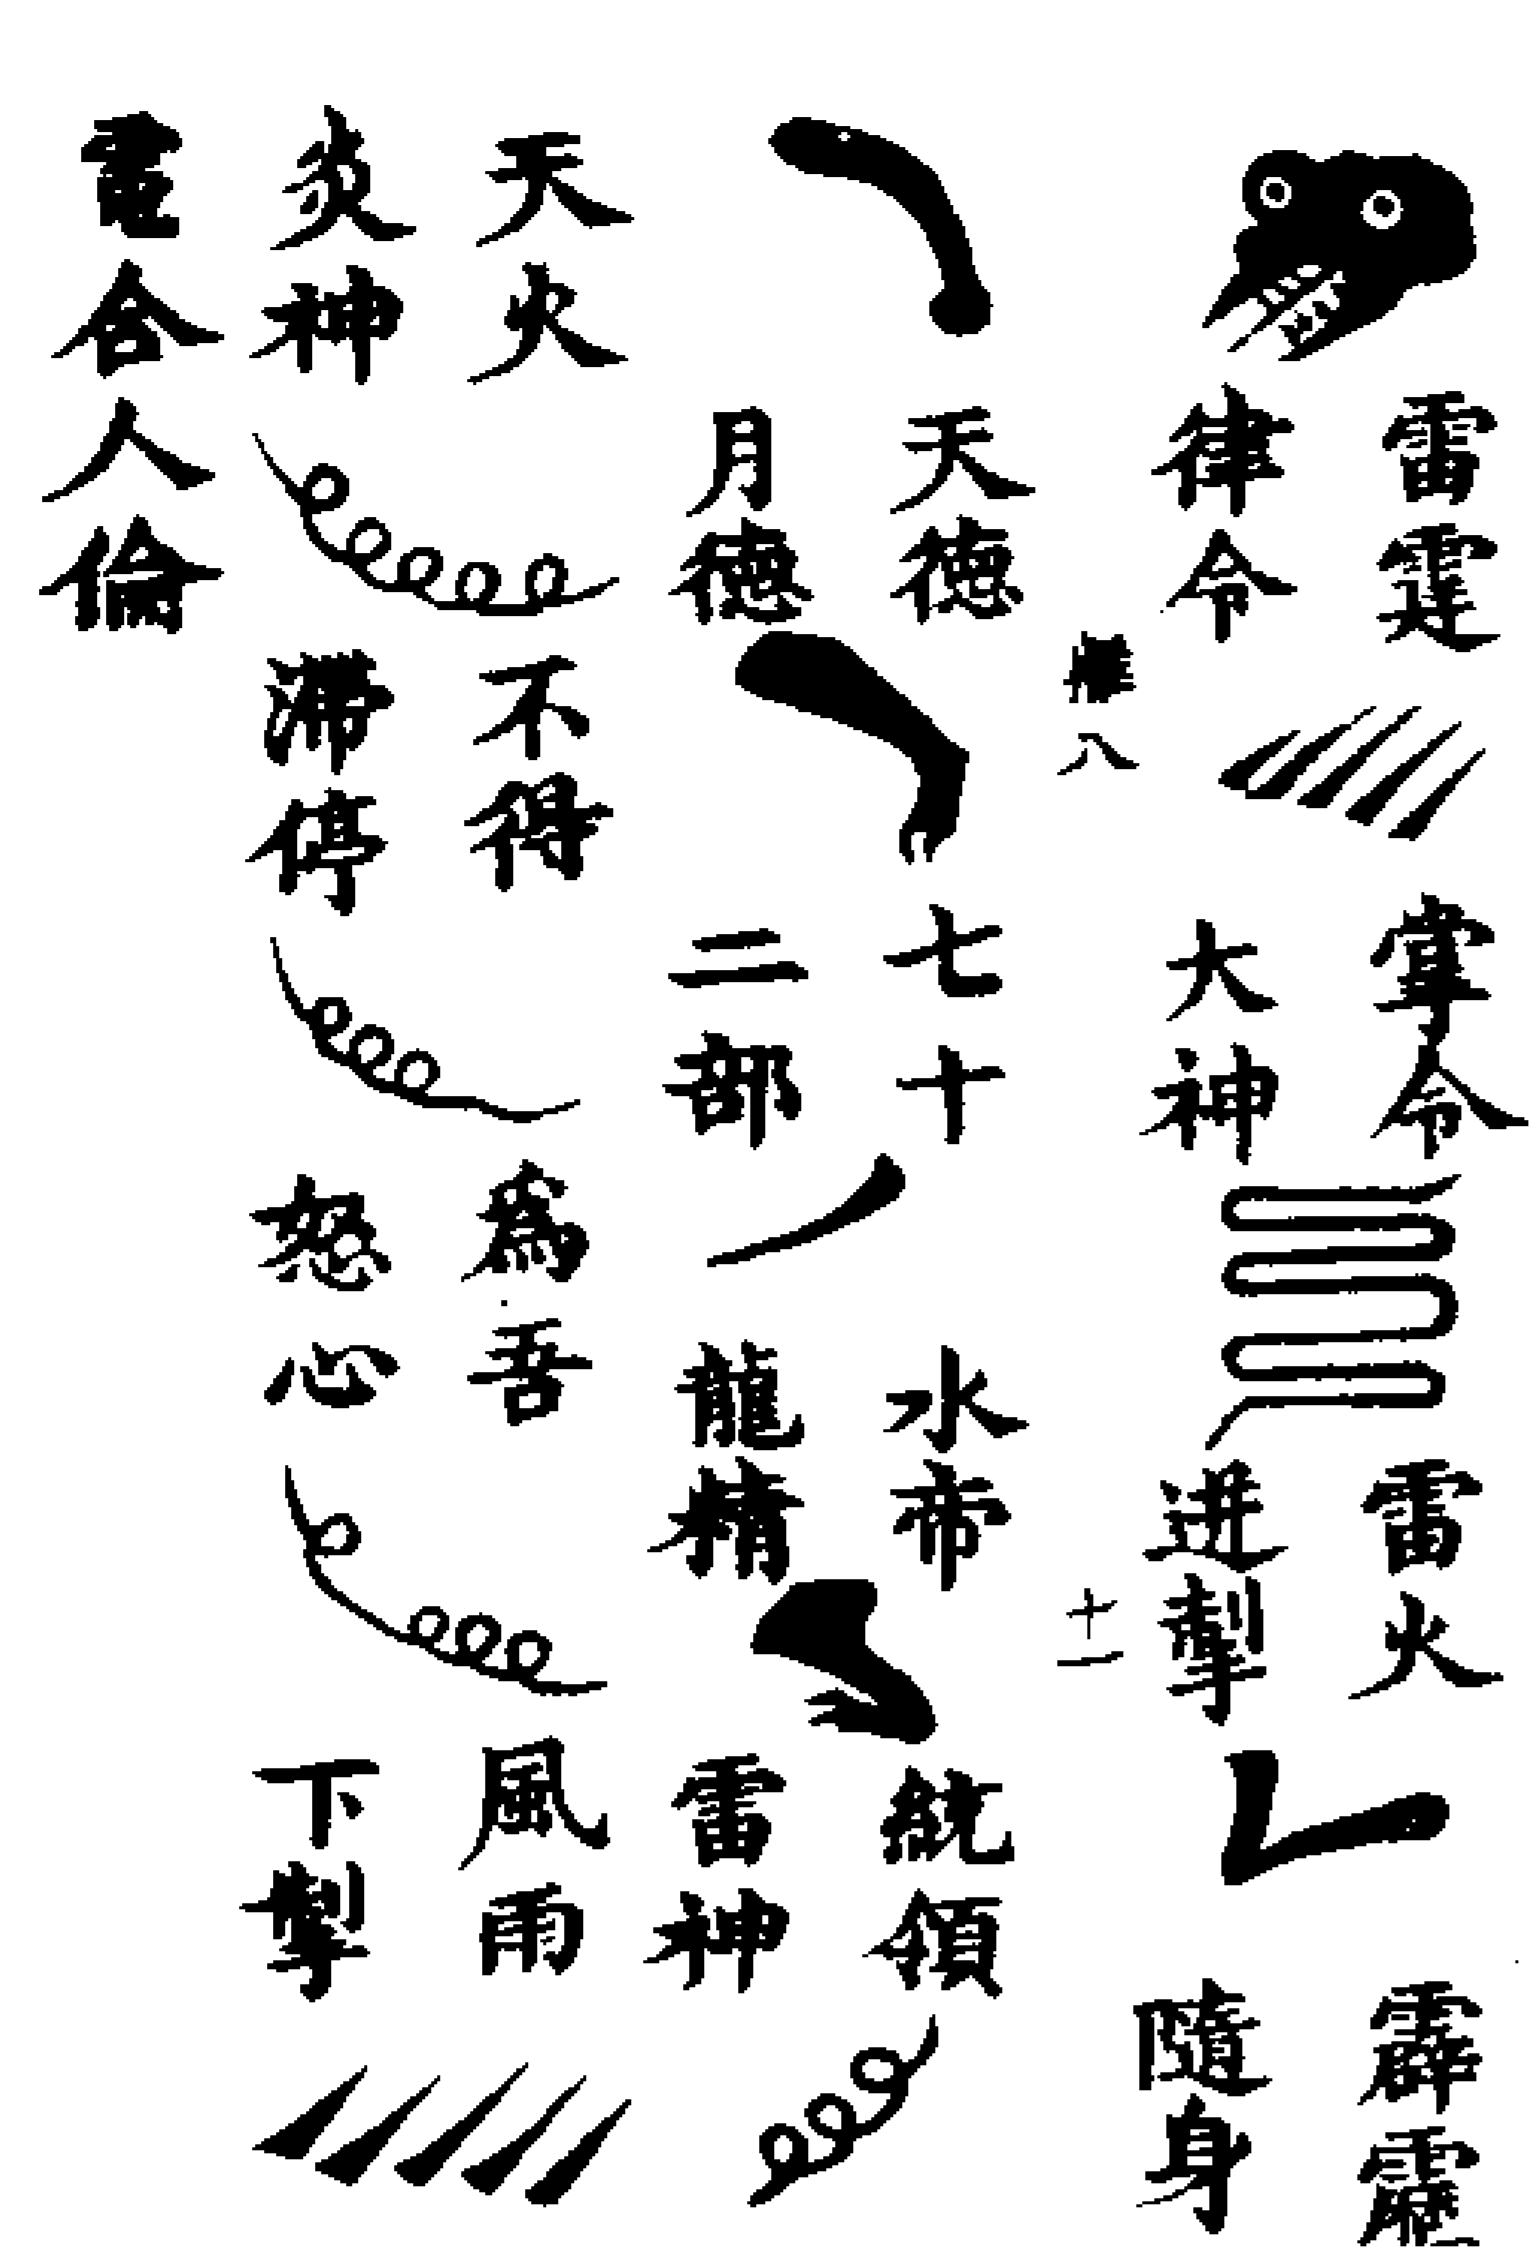 雷霆
律令
掌令
大神
雷火
迸掣
霹靂
隨身
八
十一
天德
月德
七十
二部
水帝
龍精
統領
雷神
天火
炎神
不得
滯停
為吾
怒心
風雨
下掣
合人倫